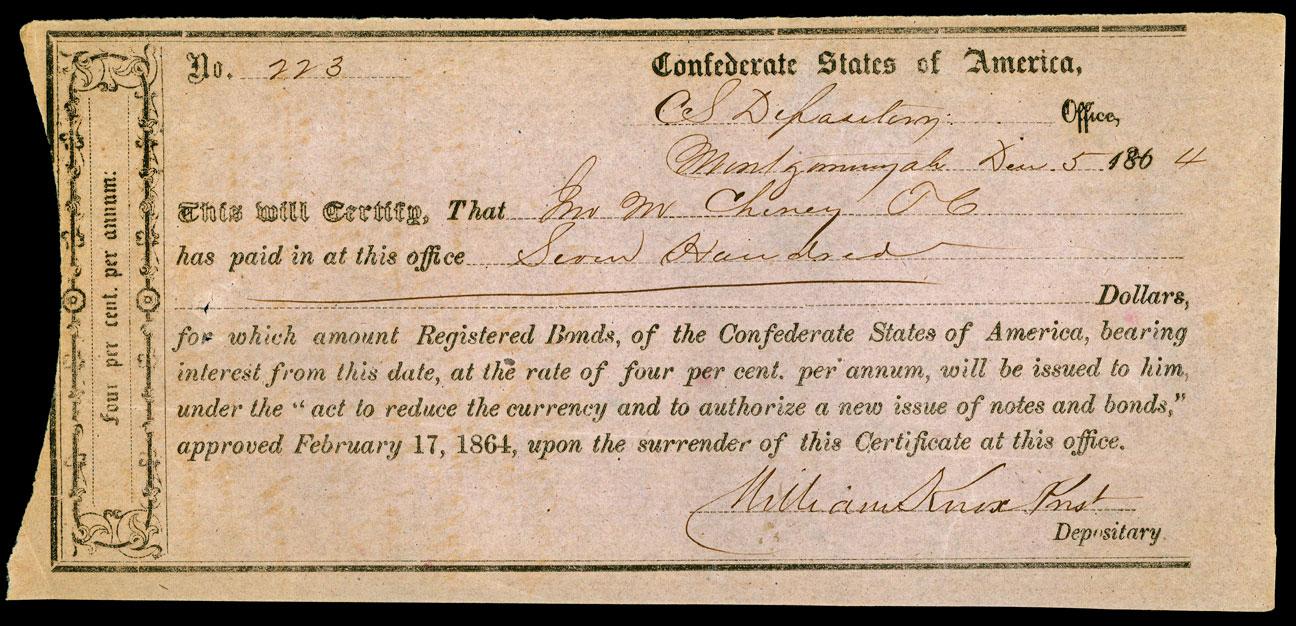 No. 223
Confederate States of America,
CS Depository Office,
Montgomery ala Decr 5 1864
This will Certify, That Jno M Cheney T C
has paid in at this office Seven Hundred
Dollars,
for which amount Registered Bonds, of the Confederate States of America, bearing
interest from this date, at the rate of four per cent. per annum, will be issued to him,
under the "act to reduce the currency and to authorize a new issue of notes and bonds,"
approved February 17, 1864, upon the surrender of this Certificate at this office.
William Knox
Depositary
Four per cent. per annum: